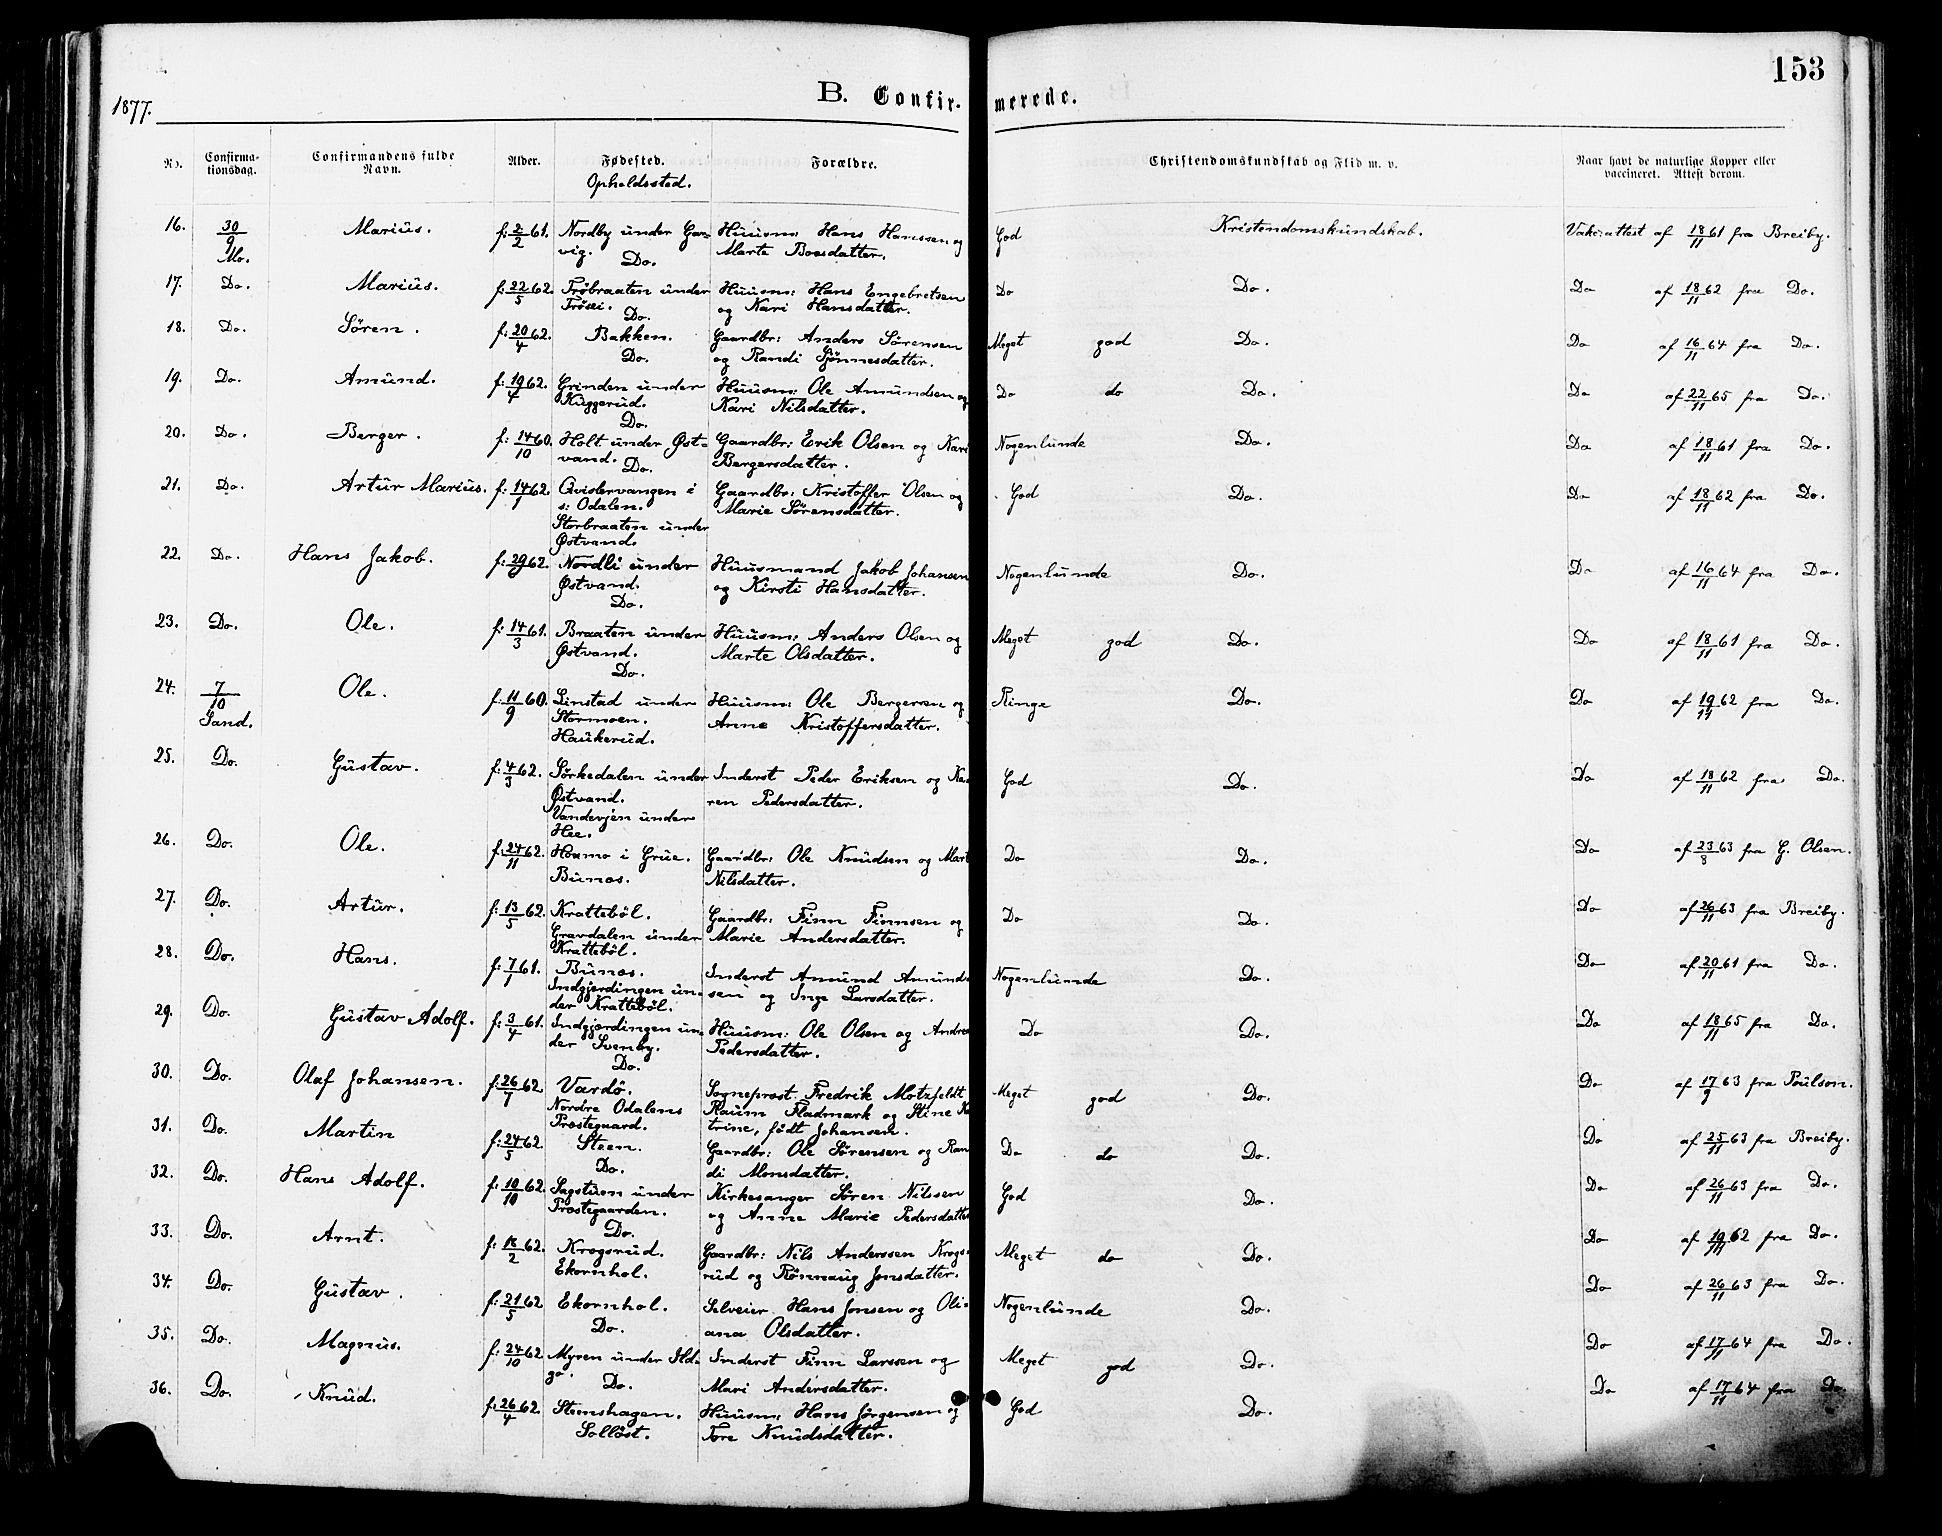 153
1877.
B. Confirmerede.
No. Confirmationsdag. Confirmandens fulde Navn. Alder. Fødested. Forældre. Christendomskundskab og Flid m. v. Naar havt de naturlige Kopper eller vaccineret. Attest derom.
Opholdssted.
16. 30/9 Mo. Marius. f: 2/2 61. Nordby under Gar- Huusm: Hans Hanssen og God Kristendomskundskab. Vakc:attest af 18/11 61 fra Breiby.
vig. Do. Marte Boesdatter.
17. Do. Marius. f: 22/5 62. Frøbraaten under Huusm: Hans Engebretsen Do Do. Do af 18/11 62 fra Do.
Frøsei. Do. og Kari Hansdatter.
18. Do. Søren. f: 20/4 62. Bakken. Gaardbr: Anders Sørensen Meget god Do. Do af 16/11 64 fra Do.
Do. og Randi Gjønnesdatter.
19. Do. Amund. f: 19/4 62. Grinden under Huusm: Ole Amundsen og Do do Do. Do af 22/11 65 fra Do.
Kuggerud. Do. Kari Nilsdatter.
20. Do. Berger. f: 14/10 60. Holt under Øst- Gaardbr: Erik Olsen og Kari Nogenlunde Do. Do af 18/11 61 fra Do.
vand. Do. Bergersdatter.
21. Do. Artur Marius. f: 14/1 62. Qvislervangen i Gaardbr: Kristoffer Olsen og God Do. Do af 18/11 62 fra Do.
s: Odalen. Marie Sørensdatter.
Storbraaten under
Østvand.
22. Do. Hans Jakob. f: 29/ 62. Nordli under Huusmand Jakob Johansen Nogenlunde Do. Do af 16/11 64 fra Do.
Østvand. og Kirsti Hansdatter.
Do.
23. Do. Ole. f: 14/3 61. Braaten under Huusm: Anders Olsen og Meget god Do. Do af 18/11 61 fra Do.
Østvand. Marte Olsdatter.
Do.
24. 7/10 Sand. Ole. f: 11/9 60. Linstad under Huusm: Ole Bergersen og Ringe Do. Do af 19/11 62 fra Do.
Stormoen. Anne Kristoffersdatter.
Haukerud.
25. Do. Gustav. f: 4/3 62. Sørkedalen under Inderst Peder Eriksen og Ka- God Do. Do af 18/11 62 fra Do.
Østvand. ren Pedersdatter.
Vandersjen under
Hee.
26. Do. Ole. f: 24/11 62. Hoxmo i Grue. Gaardbr: Ole Knudsen og Mart Do Do. Do af 23/8 63 fra G. Olsen.
Bunæs. Nilsdatter.
27. Do. Artur. f: 13/5 62. Kratteböl. Gaardbr: Finn Finnsen og Do Do. Do af 26/11 63 fra Breiby.
Gravdalen under Marie Andersdatter.
Kratteböl.
28. Do. Hans. f: 7/1 61. Bunæs. Inderst Amund Amund- Nogenlunde Do. Do af 20/11 61 fra Do.
Indgjerdingen un- sen og Inge Larsdatter.
der Kratteböl.
29. Do. Gustav Adolf. f: 3/4 61. Indgjerdingen un- Huusm: Ole Olsen og Andrea Do Do. Do af 18/11 65 fra Do.
der Svenby. Pedersdatter.
Do.
30. Do. Olaf Johansen. f: 26/7 62. Vardö. Sogneprost Fredrik Motzfeldt Meget god Do. Do af 17/9 63 fra Poulson.
Nordre Odalens Raum Fladmark og Stine Ka
Prostegaard. trine, født Johansen.
31. Do. Martin f: 24/5 62. Steen. Gaardbr: Ole Sørensen og Ran Do do Do. Do af 25/11 63 fra Breiby.
Do. di Monsdatter.
32. Do. Hans Adolf. f: 10/10 62. Sagstuen under Kirkesanger Søren Nilssen God Do. Do af 26/11 63 fra Do.
Prostegaarden. og Anne Marie Pedersdatter
Do.
33. Do. Arnt. f: 18/2 62. Krogsrud. Gaardbr: Nils Anderssen Krogs- Meget do Do. Do af 19/11 62 fra Do.
Ekornhol. rud og Rønnaug Jonsdatter.
34. Do. Gustav. f: 21/5 62 Ekornhol. Selveier Hans Jonsen og Oli- Nogenlunde Do. Do af 26/11 63 fra Do.
Do. ana Olsdatter.
35. Do. Magnus. f: 24/10 62 Myren under Ild- Inderst Finn Larssen og Meget god Do. Do af 17/11 64 fra Do.
Do. Mari Andersdatter.
36. Do. Knud. f: 26/4 62. Stenshagen. Huusm: Hans Jørgensen og God Do. Do af 17/11 64 fra Do.
Solløst. Tore Knudsdatter.